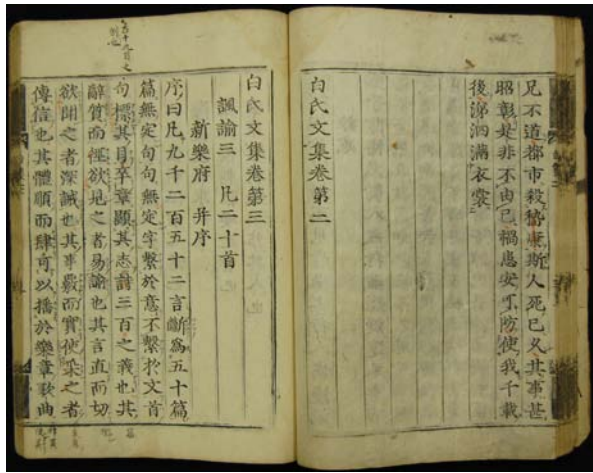 兄不道都市殺嵇康斯人死已久其事甚
昭彰是非不由己禍患安可防使我千載
後涕泗滿衣裳
白氏文集卷第二
白氏文集卷第三
諷諭三 凡二十首
新樂府 幷序
序曰凡九千二百五十二言斷爲五十篇
篇無定句句無定字繫於意不繫於文首
句標其目卒章顯其志詩三百之義也其
辭質而徑欲見之者易諭也其言直而切
欲聞之者深誡也其事覈而實使采之者
傳信也其體順而肆可以播於樂章歌曲